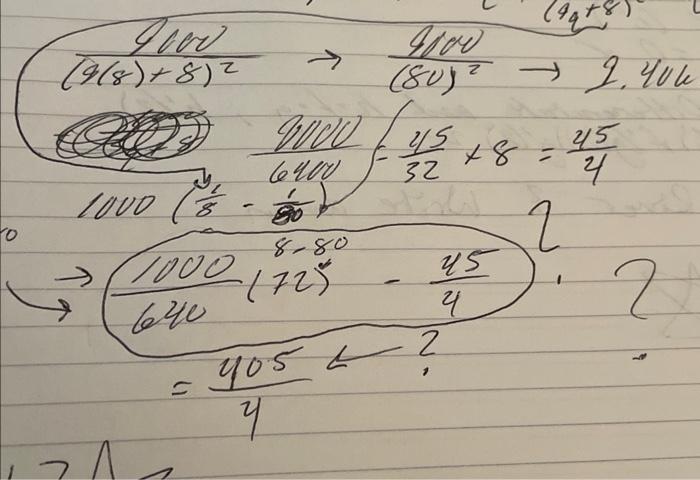 (9q+8)
9000/(9(8)+8)² → 9000/(80)² → 1.406
9000/6400 = 45/32 × 8 = 45/4
1000 (1/8 - 1/80)
8-80
→ 1000/640 (72) - 45/4 ?
= 405/4 ← ?